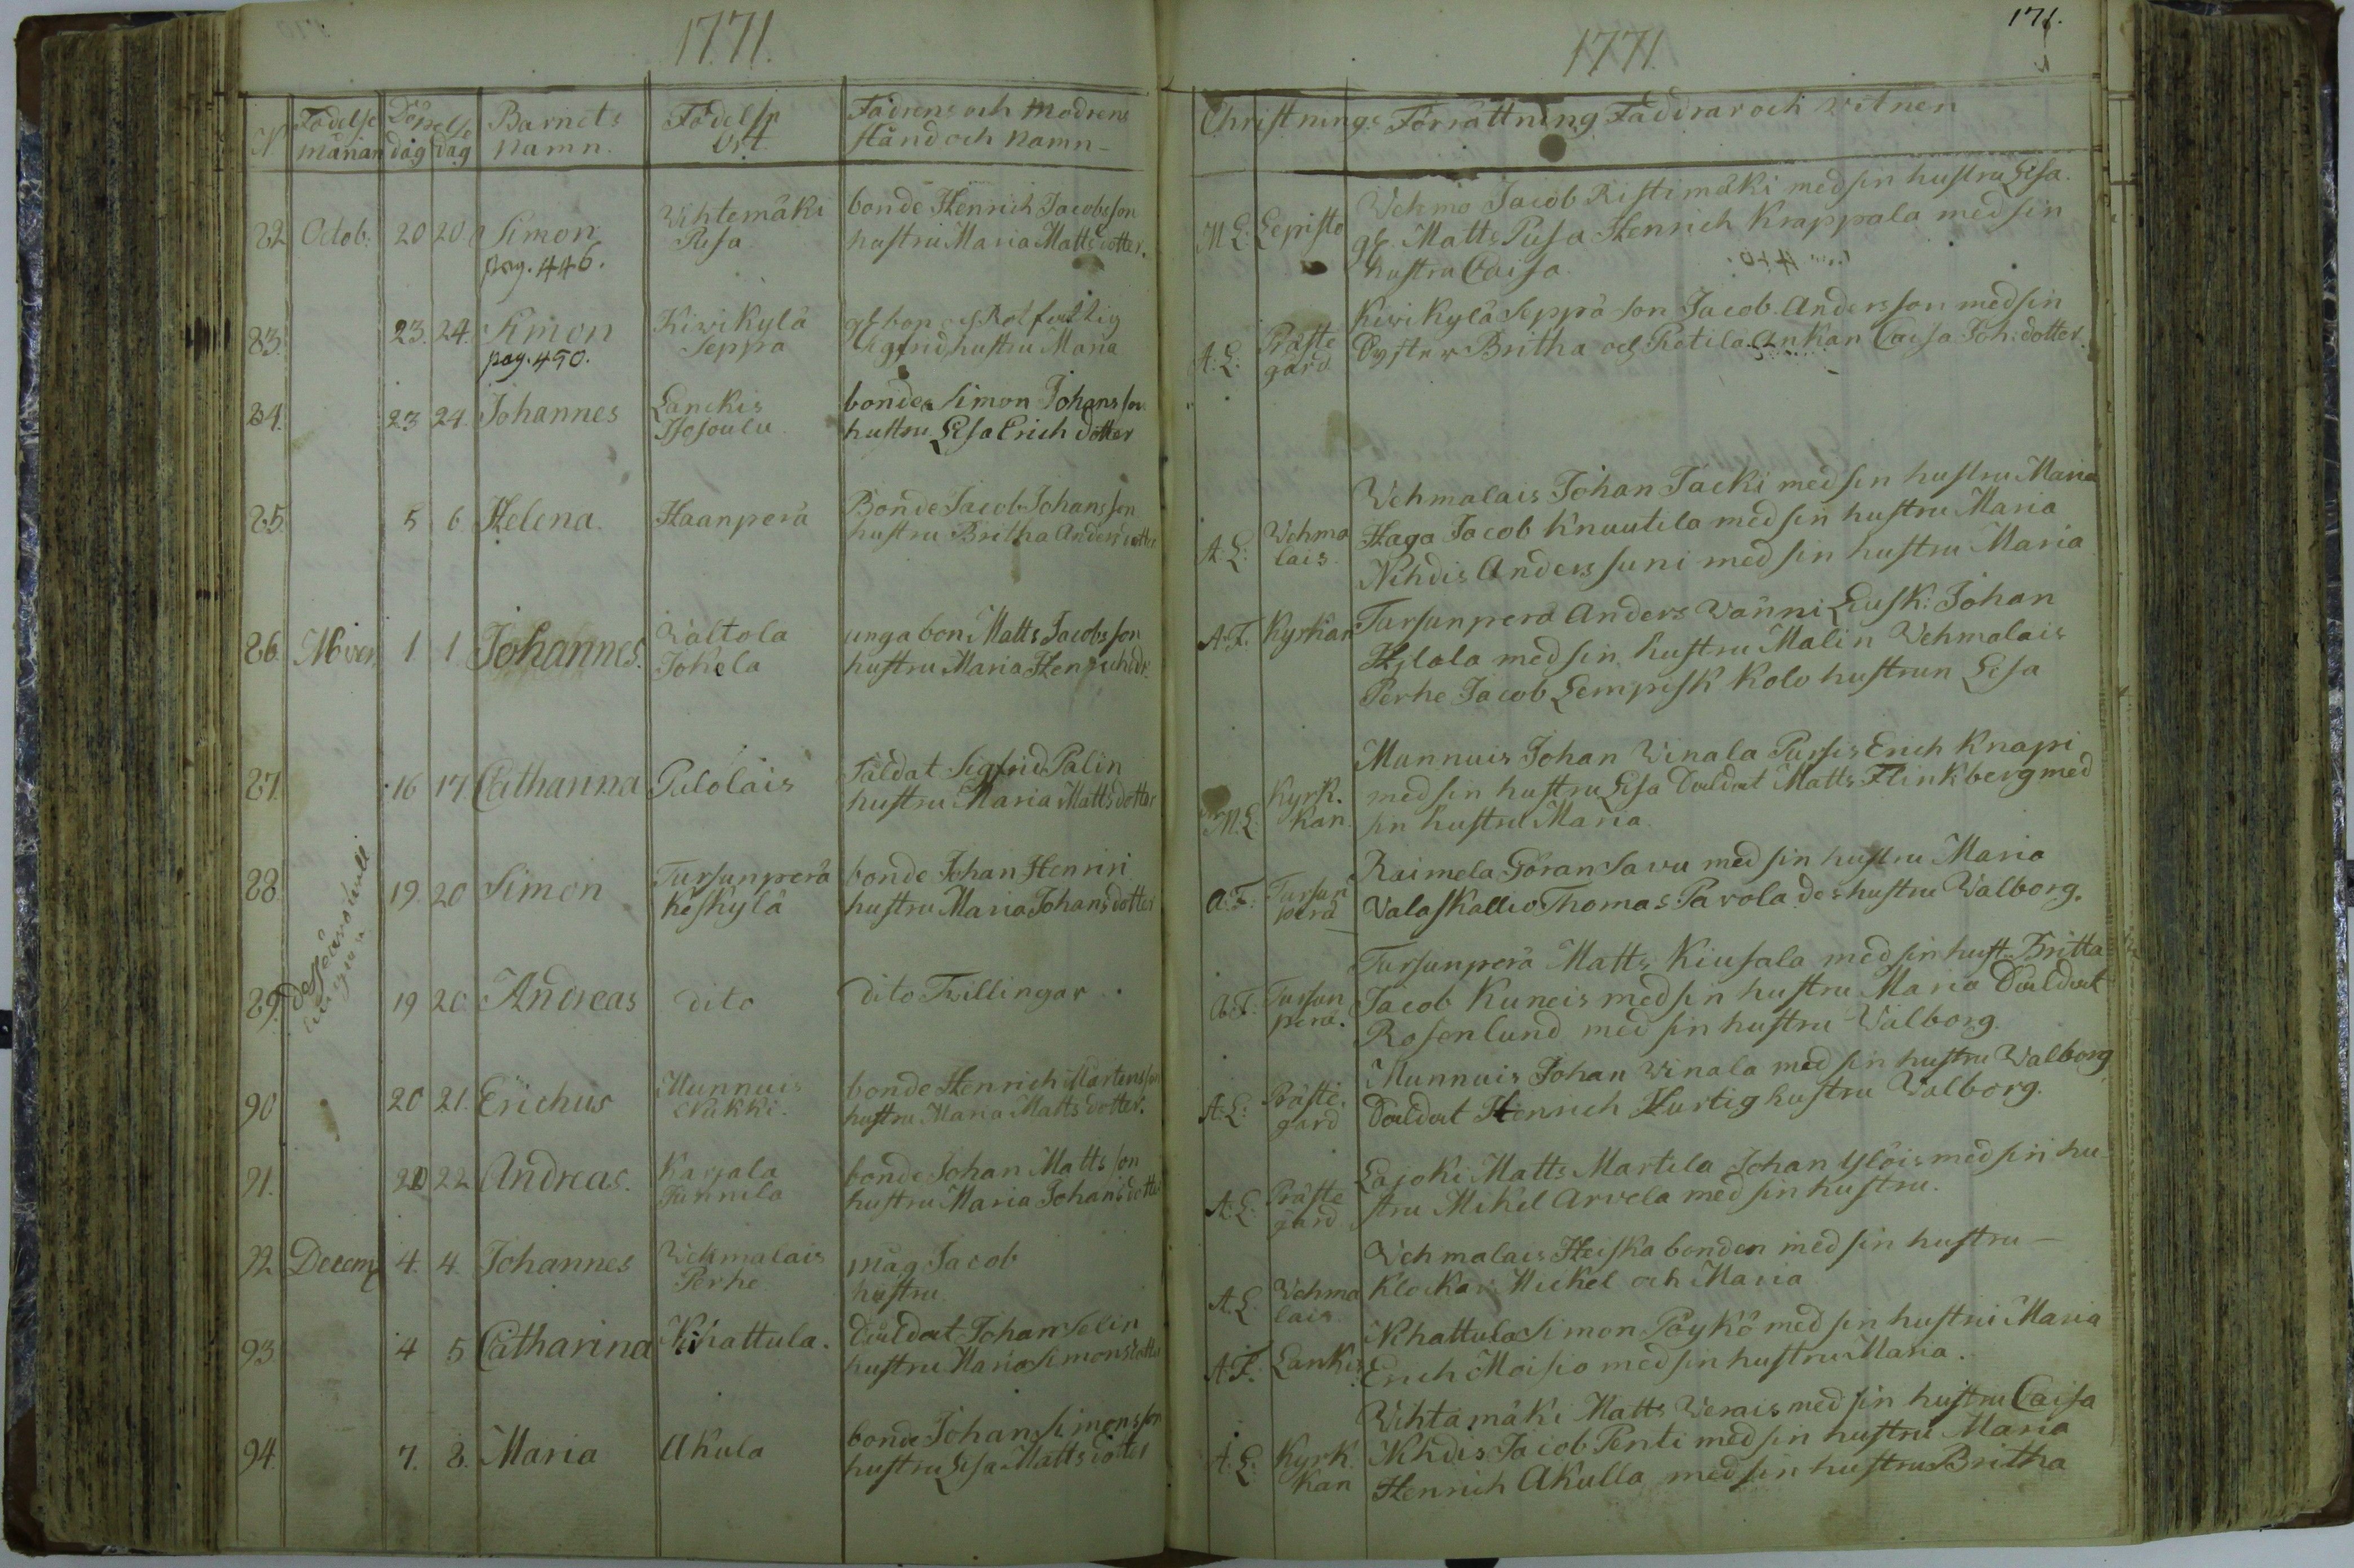 1771.
N
Födelse
månan
dag
Döpelse
dag
Barnets
Namn.
Födelse
Ort.
Fädrens och Modrens
stånd och namn
82 Octob. 20 20 Simon
pag. 446.
Wihtemäki
Pusa
bonde Henrich Jacobsson
hustru Maria Mattsdotter.
83. 23. 24. Simon
pag. 450.
Kiwikylä
Seppä
hustru Maria
84. 23 24. Johannes
Lanckis
Isosoulu
bonden Simon Johansson
hustru Lisa Erich dotter
85. 5 6 Helena.
Haanperä
Bonde Jacob Johansson
hustru Britha Anders dotter
86. 1 1 Johannes.
Waltola
Jokela
unga bon. Matts Jacobsson
hustru Maria
87. 16 17. Catharina
Palolais
Såldat Sigfrid Palin
hustru Maria Mattsdotter
88. 19. 20 Simon
Tursunperä
Keskylä
bonde Johan Henriri
hustru Maria Johansdotter
89. 19 20 Andreas
dito
dito Twillingar.
90 20 21. Erichus
Munnuis
Näkki.
bonde Henrich Mårtensson
hustru Maria Matts dotter.
91. 22 Andreas.
Karjala
Tunnila
bonde Johan Mattsson
hustru Maria Johans dotter
92 Decemb 4. 4. Johannes
Wehmalais
Perhe
måg Jacob
hustru
93 4 5 Catharina
Nihattula.
Dåldat Johan Selin
hustru Maria Simonsdotter
94. 7. 8. Maria
Akula
bonde Johan Simonsson
hustru Lisa Mattsdotter
171.
1771
Christnings Förrättning Faddrar och Witnen
M. L. Lepisto
Wehmo Jacob Ristimäki med sin hustru Lisa.
gl. Matts Pusa Henrich Krappala med sin
hustru Caisa
A: L: Präste
gård
Kiwikylä Seppä son Jacob Andersson med sin
Syster Britha och Retila Ankan Caisa Joh: dotter.
A: L: Wehma
lais.
Wehmalais Johan Jäcki med sin hustru Maria
Haga Jacob Knuutila med sin hustru Maria
Nihdis Anders Juni med sin hustru Maria
A: F: Kyrkan
Tursunperä Anders Wänni Johan
med sin hustru Malin Wehmalais
Perhe Jacob Lempisk Kolo hustrun Lisa
M. L. Kyrk.
kan.
Munnuis Johan Winala Pursis Erich Knapi
med sin hustru Lisa Dåldat Matts Flinkberg med
sin hustru Maria.
A: F: Tursun
perä
Raimela Göran Savu med sin hustru Maria
Valaskallio Thomas Parola des hustru Walborg.
A: F: Tursun
perä.
Tursunperä Matts Kiusala med sin hust. Britta
Jacob Kuneis med sin hustru Maria Dåldat
Rosenlund med sin hustru Walborg.
A: L: Präste
gård
Munnuis Johan Winala med sin hustru Walborg
Dåldat Henrich Hurtig hustru Walborg.
A: L: Präste
gård
Lajoki Matts Martila Johan Ylöis med sin hu
stru Mikel Arvela med sin hustru.
A. L. Wehma
lais.
Wehmalais Heiska bonden med sin hustru
Klockar Mickel och Maria
A: F. Lankis
Nihattula Simon Pöykö med sin hustru Maria
Erich Moisio med sin hustru Maria.
A: L: Kyrk
kan
Wihtamäki Matts Werais med sin hustru Caisa
Nihdis Jacob Penti med sin hustru Maria
Henrich Akulla med sin hustru Britha